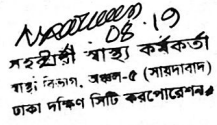 08.19
সহকারী স্বাস্থ্য কর্মকর্তা
স্বাস্থ্য বিভাগ, অঞ্চল-৫ (সায়দাবাদ)
ঢাকা দক্ষিণ সিটি করপোরেশন